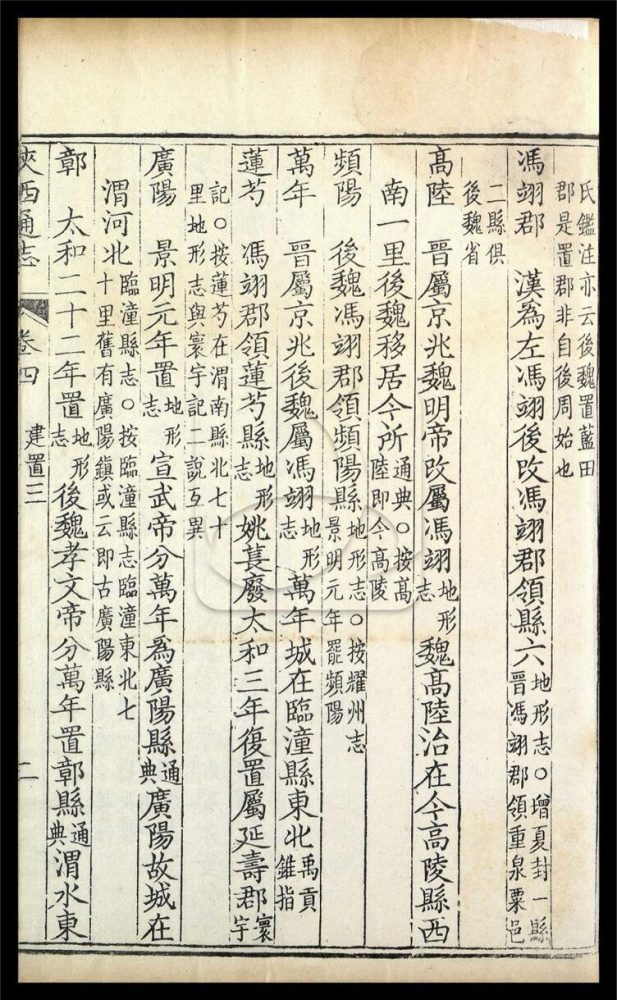 氏鑑注亦云後魏置藍田
郡是置郡非自後周始也
馮翊郡　漢為左馮翊後改馮翊郡領縣六地形志○增夏封一縣
晉馮翊郡領重泉粟邑
二縣俱
後魏省
高陸　晉屬京兆魏明帝改屬馮翊地形志　魏高陸治在今高陵縣西
南一里後魏移居今所通典○按高陸即今高陵
頻陽　後魏馮翊郡領頻陽縣地形志○按耀州志
景明元年罷頻陽
萬年　晉屬京兆後魏屬馮翊地形志　萬年城在臨潼縣東北禹貢錐指
蓮芍　馮翊郡領蓮芍縣地形志　姚萇廢太和三年復置屬延壽郡寰宇
記○按蓮芍在渭南縣北七十
里地形志與寰宇記二說互異
廣陽　景明元年置地形志　宣武帝分萬年為廣陽縣通典廣陽故城在
渭河北臨潼縣志○按臨潼縣志臨潼東北七
十里舊有廣陽鎮或云即古廣陽縣
鄣　太和二十二年置地形志　後魏孝文帝分萬年置鄣縣通典渭水東
陝西通志　卷四　建置三　二